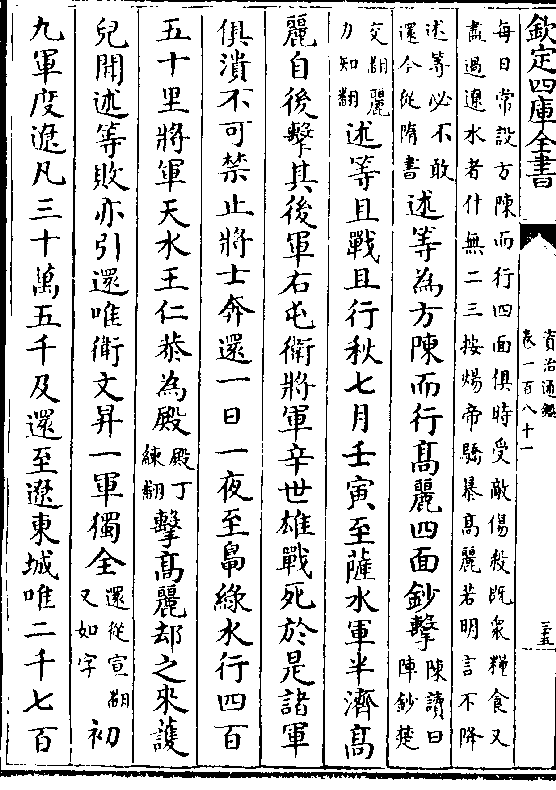 欽定四庫全書
資治通鑑
卷一百八十一
三五
每日常設方陳而行四面俱時受敵傷殺既衆糧食又
盡過遼水者什無二三按煬帝驕暴髙麗若明言不降
述等必不敢
還今從隋書
述等為方陳而行髙麗四面鈔擊
陳讀曰
陣鈔楚
交翻麗
力知翻
述等且戰且行秋七月壬寅至薩水軍半濟髙
麗自後擊其後軍右屯衛將軍辛世雄戰死於是諸軍
俱潰不可禁止將士奔還一日一夜至鴨緑水行四百
五十里將軍天水王仁恭為殿
殿丁
練翻
擊髙麗却之來護
兒聞述等敗亦引還唯衛文昇一軍獨全
還從宣翻
又如字
初
九軍度遼凡三十萬五千及還至遼東城唯二千七百